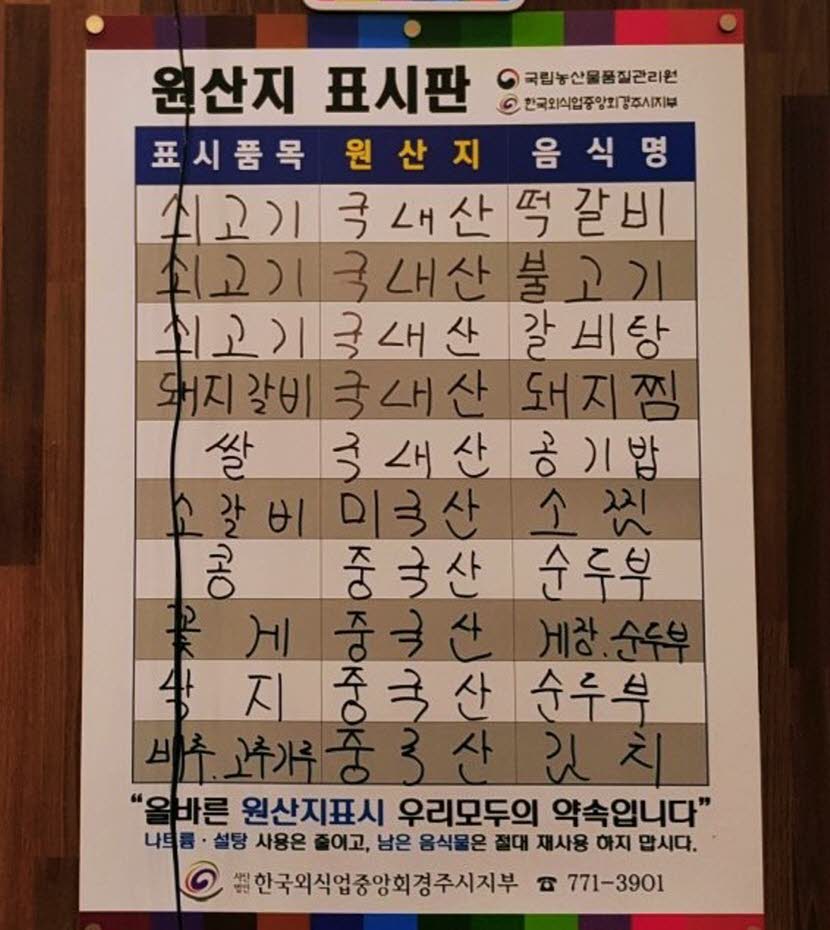 원산지 표시판
국립농산물품질관리원
한국외식업중앙회경주시지부
표시품목 원산지 음식명
쇠고기 국내산 떡갈비
쇠고기 국내산 불고기
쇠고기 국내산 갈비탕
돼지갈비 국내산 돼지찜
쌀 국내산 공기밥
소갈비 미국산 소찜
콩 중국산 순두부
꽃게 중국산 게장.순두부
낙지 중국산 순두부
배추.고추가루 중국산 김치
“올바른 원산지표시 우리모두의 약속입니다”
나트륨·설탕 사용은 줄이고, 남은 음식물은 절대 재사용 하지 맙시다.
사단법인 한국외식업중앙회경주시지부 ☎ 771-3901